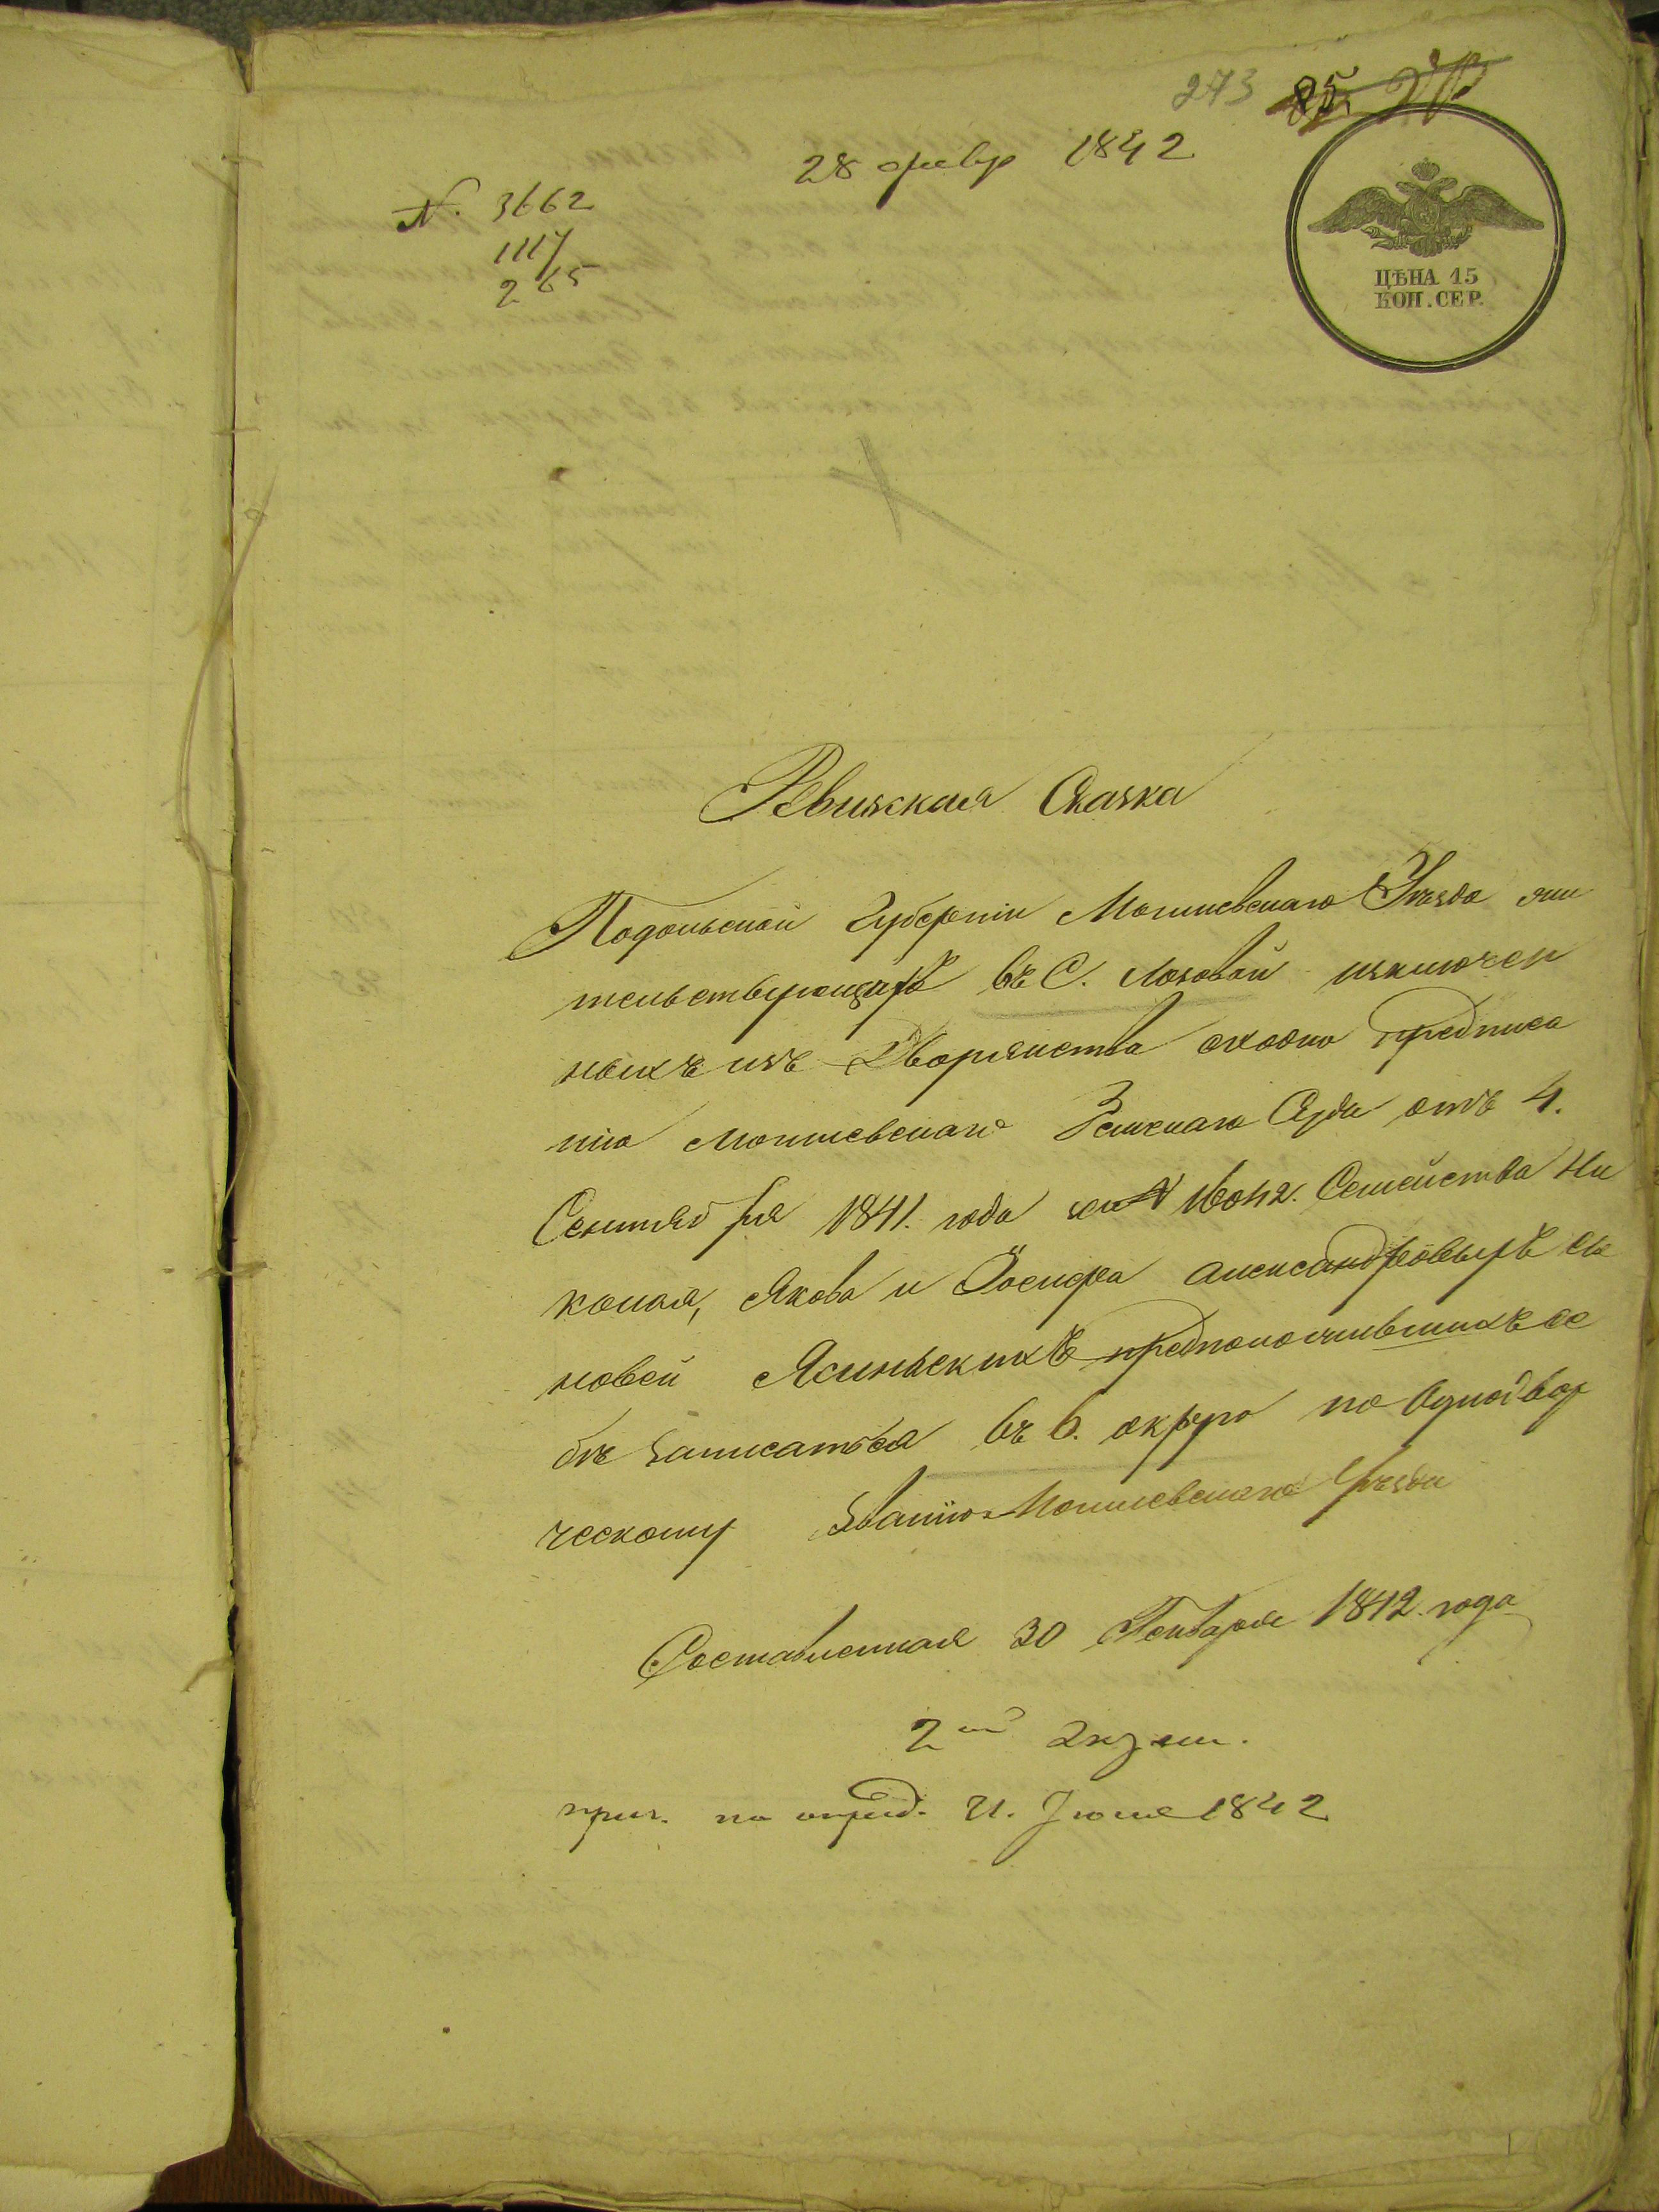 273 85.
28 февр 1842
№. 3662
1117
265
ЦѢНА 15
КОП. СЕР.
Ревизская Сказка
Подольской Губерніи Могилевскаго Уѣзда жи
тельствующихъ въ С. Лозовой изключен
ныхъ изъ Дворянства сходно предписа
нію Могилевскаго Земскаго Суда отъ 4.
Сентября 1841. года за № 16042. Семейства Ни
колая, Якова и Іосифа Александровыхъ сы
новей Ясинскихъ предположившихъ се
бѣ записатся въ 6. округѣ по Однодвор
ческому званію Могилевскаго Уѣзда
Составленная 30 Генваря 1842. года
2й экзем.
прич. по опред. 21. Іюня 1842